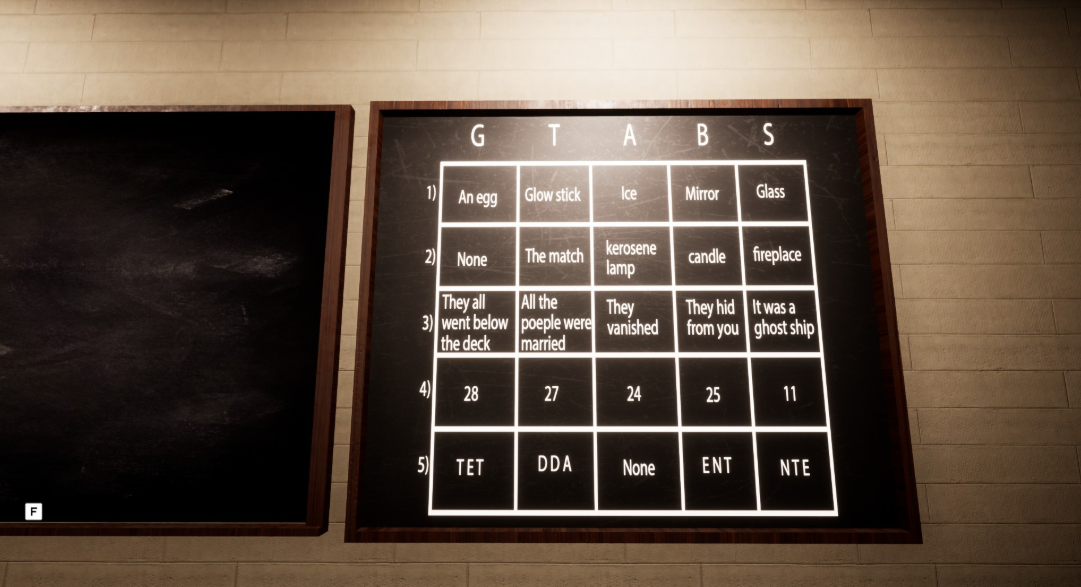 G T A B S
1) An egg Glow stick Ice Mirror Glass
2) None The match kerosene lamp candle fireplace
3) They all went below the deck All the poeple were married They vanished They hid from you It was a ghost ship
4) 28 27 24 25 11
5) TET DDA None ENT NTE
F